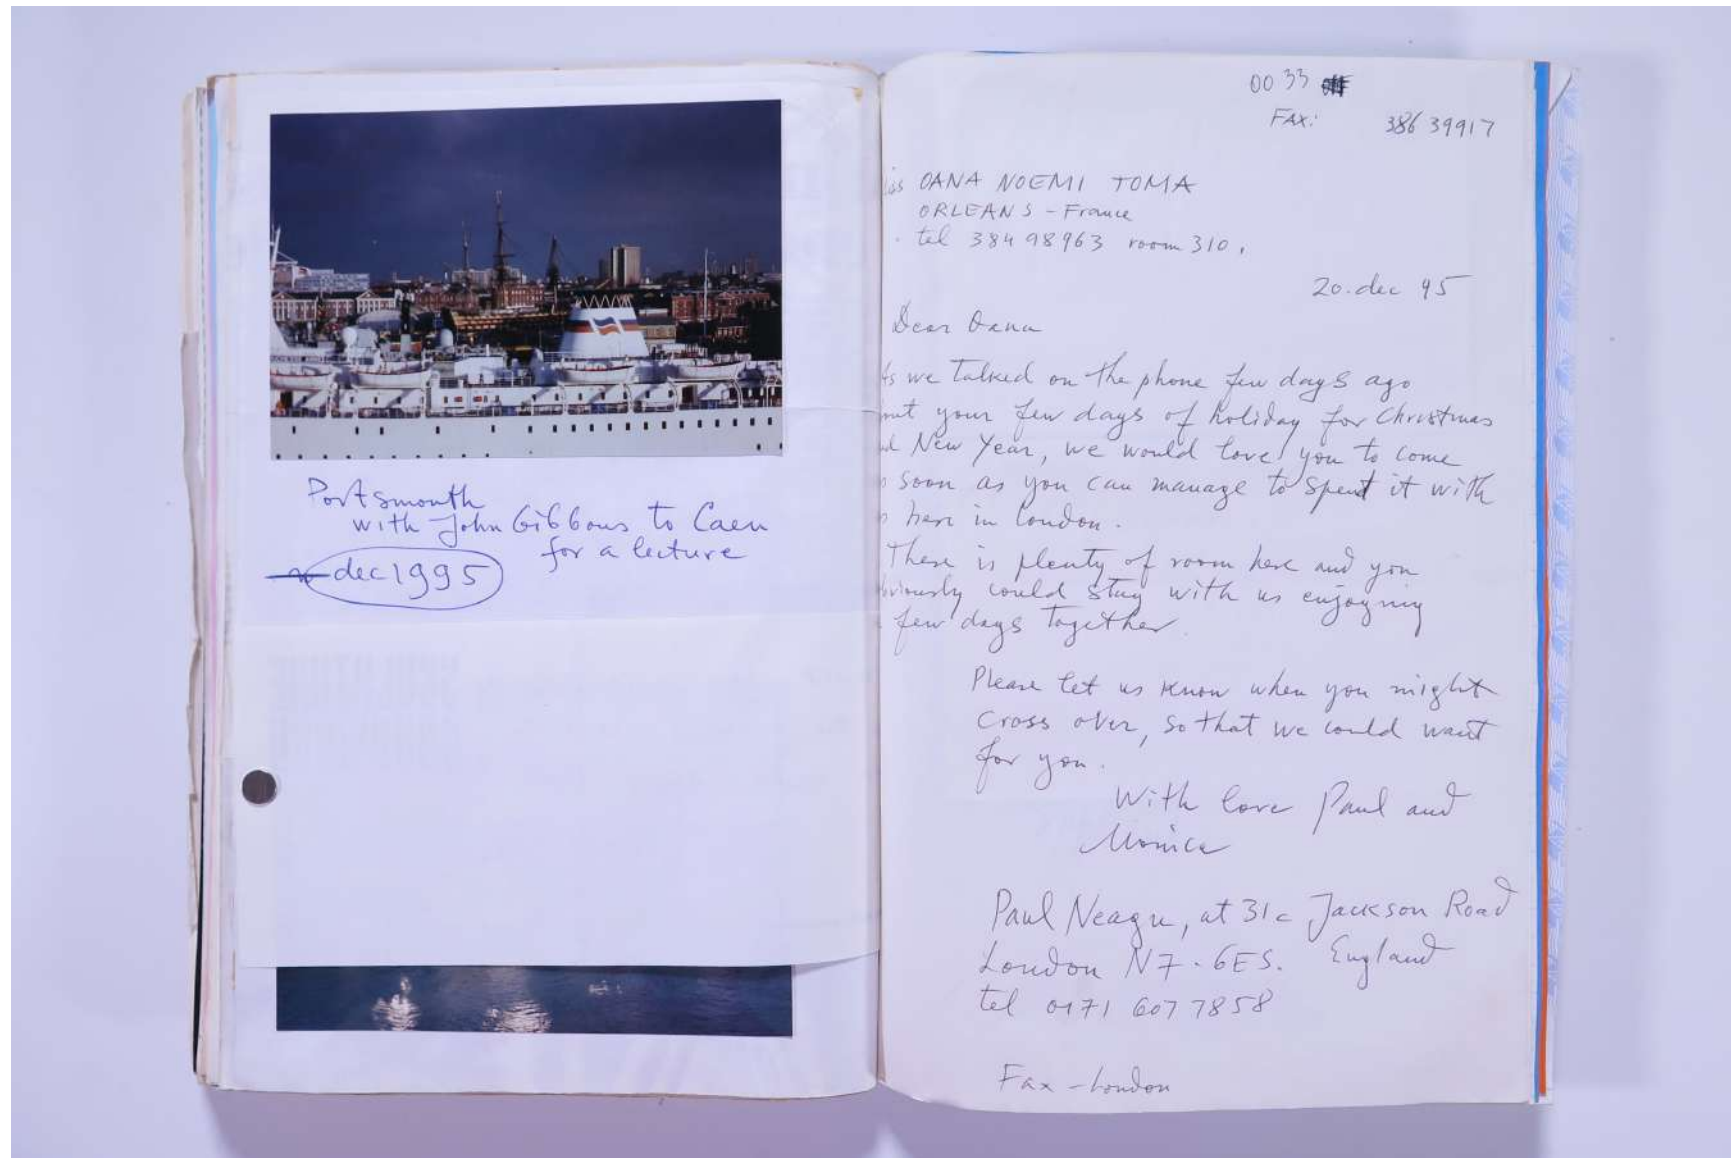 Portsmouth
with John Gibbons to Caen
for a lecture
dec 1995
00 33
FAX: 386 39917
iss OANA NOEMI TOMA
ORLEANS - France
tel 384 98963 room 310.
20. dec 95
Dear Oana
As we talked on the phone few days ago
out your few days of holiday for Christmas
nd New Year, we would love you to come
s soon as you can manage to spent it with
s here in London.
There is plenty of room here and you
bviously could stay with us enjoying
few days together.
Please let us know when you might
cross over, so that we could wait
for you.
With love Paul and
Monica
Paul Neagu, at 31c Jackson Road
London N7-6ES. England
tel 0171 607 7858
Fax - London